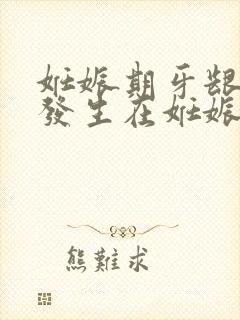 妊娠期牙龈
發生在妊娠
熊難求